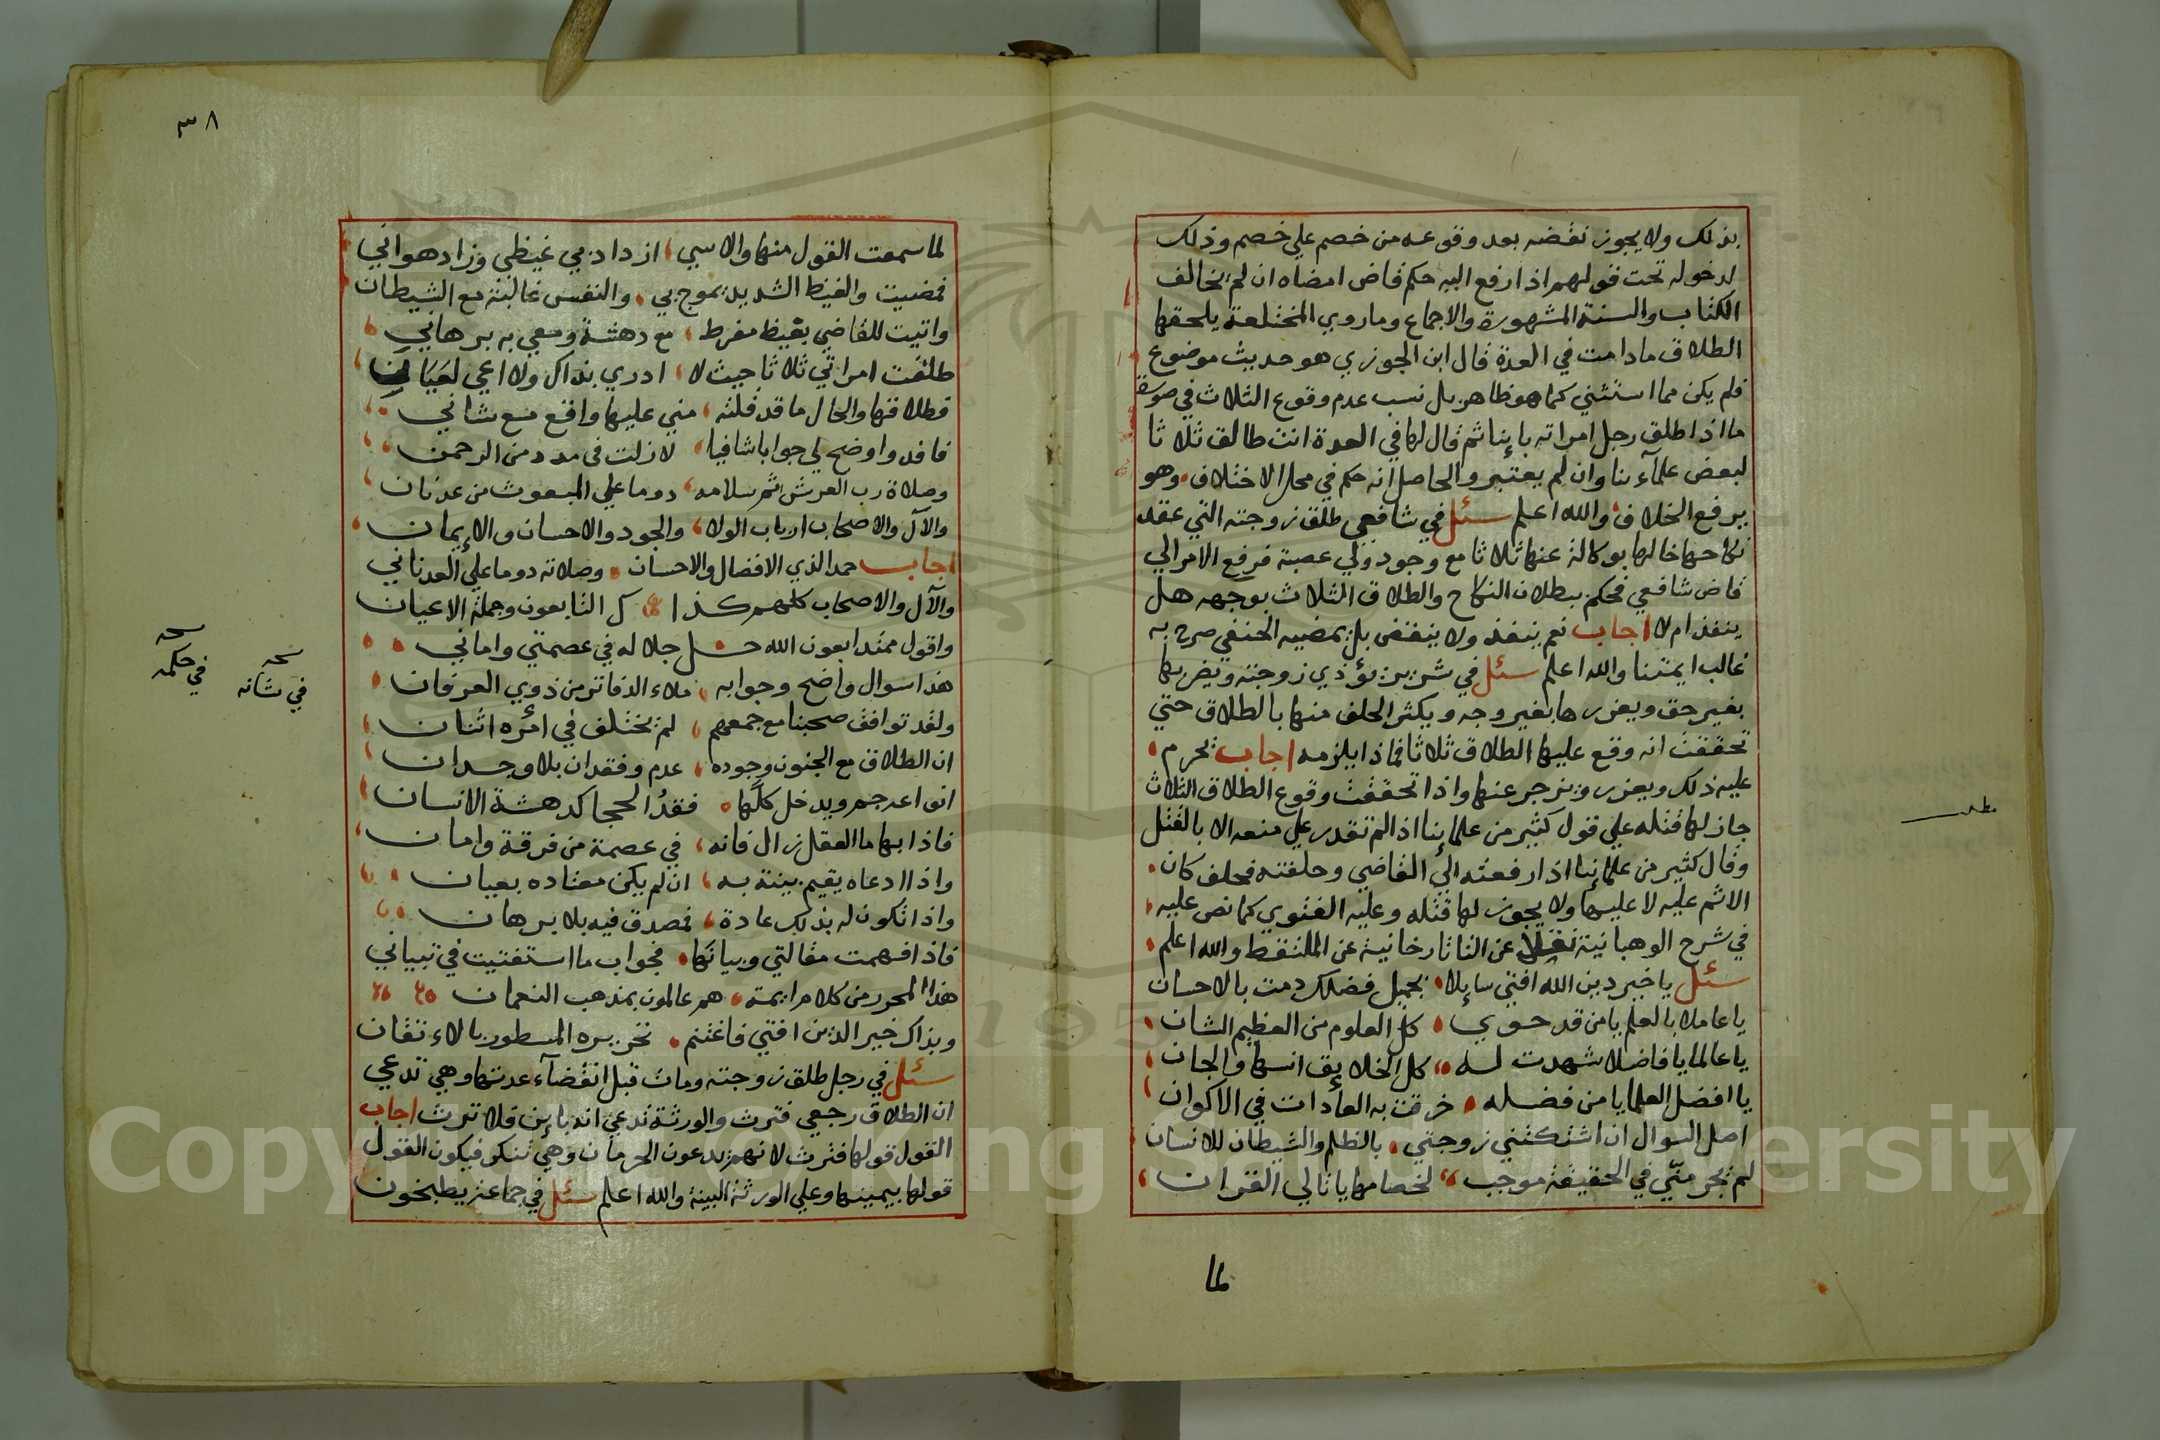 بذلك ولا يجوز نقضه بعد وقوعه من خصم علي خصم وذلك
لدخوله تحت قولهم اذا رفع اليه حكم قاض امضاه ان لم يخالف
الكتاب والسنة المشهورة والاجماع وما روي المختلعة يلحقها
الطلاق ما دامت في العدة قال ابن الجوزي هو حديث موضوع
فلم يكن مما استثني كما هو ظاهر بل نسب عدم وقوع الثلاث في صورة
ما اذا طلق رجل امراته باينا ثم قال لها في العدة انت طالق ثلاثا
لبعض علمآءنا وان لم يعتبر والحاصل انه حكم في محل الاختلاف وهو
يرفع الخلاف والله اعلم سئل في شافعي طلق زوجته التي عقد
نكاحها خالها بوكالة عنها ثلاثا مع وجود ولي عصبة فرفع الامر الي
قاض شافعي فحكم ببطلان النكاح والطلاق الثلاث بوجهه هل
ينفذ ام لا اجاب نعم ينفذ ولا ينقض بل يمضيه الحنفي صرح به
غالب ايمتنا والله اعلم سئل في شرير يؤذي زوجته ويضربها
بغير حق ويعزرها بغير وجه ويكثر الحلف منها بالطلاق حتي
تحققت انه وقع عليها الطلاق ثلاثا فماذا يلزمه اجاب يحرم
عليه ذلك ويعزر ويزجر عنها واذا تحققت وقوع الطلاق الثلاث
جاز لها قتله علي قول كثير من علماينا اذا لم تقدر علي منعه الا بالقتل
وقال كثير من علماينا اذا رفعته الي القاضي وحلفته فحلف كان
الاثم عليه لا عليها ولا يجوز لها قتله وعليه الفتوي كما نص عليه
في شرح الوهبانية نقلا عن التاتارخانية عن الملتقط والله اعلم
سئل يا خير دين الله افتي سايلا بجميل فضلك دمت بالاحسان
يا عاملا بالعلم يا من قد حوي كل العلوم من العظيم الشان
يا عالما يا فاضلا شهدت له كل الخلايق انسها والجان
يا افضل العلما يا من فضله خرقت به العادات في الاكوان
اصل السوال ان اشتكتني زوجتي بالظلم والشيطان للانسان
لم يجر مني في الحقيقة موجب لخصامها يا تالي القران
لما
مطلب
٣٨
لما سمعت القول منها والاسي ازداد بي غيظي وزاد هواني
فمضيت والغيظ الشديد يموج بي والنفس غالبة مع الشيطان
واتيت للقاضي بغيظ مفرط مع دهشة ومعي به برهاني
طلقت امراتي ثلاثا حيث لا ادري بذاك ولا اعي لعياني
فطلاقها والحال ما قد قلته مني عليها واقع مع شاني
فافد واوضح لي جوابا شافيا لا زلت في مدد من الرحمن
وصلاة رب العرش ثم سلامه دوما علي المبعوث من عدنان
والآل والاصحاب ارباب الولا والجود والاحسان والايمان
اجاب حمدا لذي الافضال والاحسان وصلاته دوما علي العدناني
والآل والاصحاب كلهم كذا كل التابعون وجملة الاعيان
واقول ممتدا بعون الله جل جلاله في عصمتي واماني
هذا سوال واضح وجوابه ملاء الدفاتر من ذوي العرفان
ولقد توافق صحبنا مع جمعهم لم يختلف في امره اثنان
ان الطلاق مع الجنون وجوده عدم وفقدان بلا وجدان
انواعه جم ويدخل كلها فقد الحجا كدهشة الانسان
فاذا بها ما العقل زال فانه في عصمة من فرقة وامان
واذا ادعاه يقيم بينة به ان لم يكن معتاده بعيان
واذا تكون له بذلك عادة فمصدق فيه بلا برهان
فاذا فهمت مقالتي وبيانها فجواب ما استفتيت في تبياني
هذا المحرر من كلام ايمة هم عالمون بمذهب النعمان
وبذاك خير الدين افتي فاغتنم تحريره المسطور بالاتقان
سئل في رجل طلق زوجته ومات قبل انقضآء عدتها وهي تدعي
ان الطلاق رجعي فترث والورثة تدعي انه باين فلا ترث اجاب
القول قولها فترث لانهم يدعون الحرمان وهي تنكر فيكون القول
قولها بيمينها وعلي الورثة البينة والله اعلم سئل في جماعة يطبخون
نسخة
في شانه
نسخة
في حكمه
Copyright © King Saud University
195